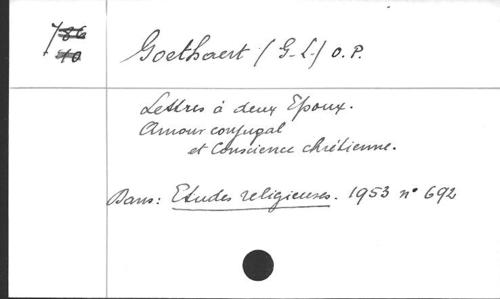 Goethaert (G-L-) O.P.
Lettres à deux Epoux.
Amour conjugal
et Conscience chrétienne.
Dans: Etudes religieuses. 1953 n° 692